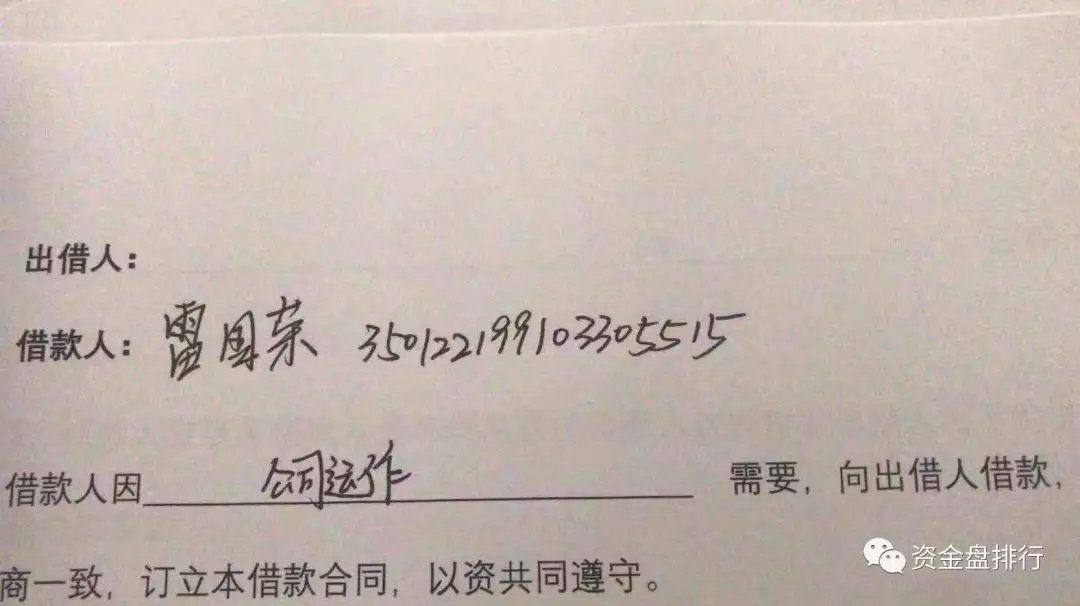 出借人：
借款人：雷国荣 350122199103305515
借款人因 公司运作 需要，向出借人借款，
商一致，订立本借款合同，以资共同遵守。
资金盘排行